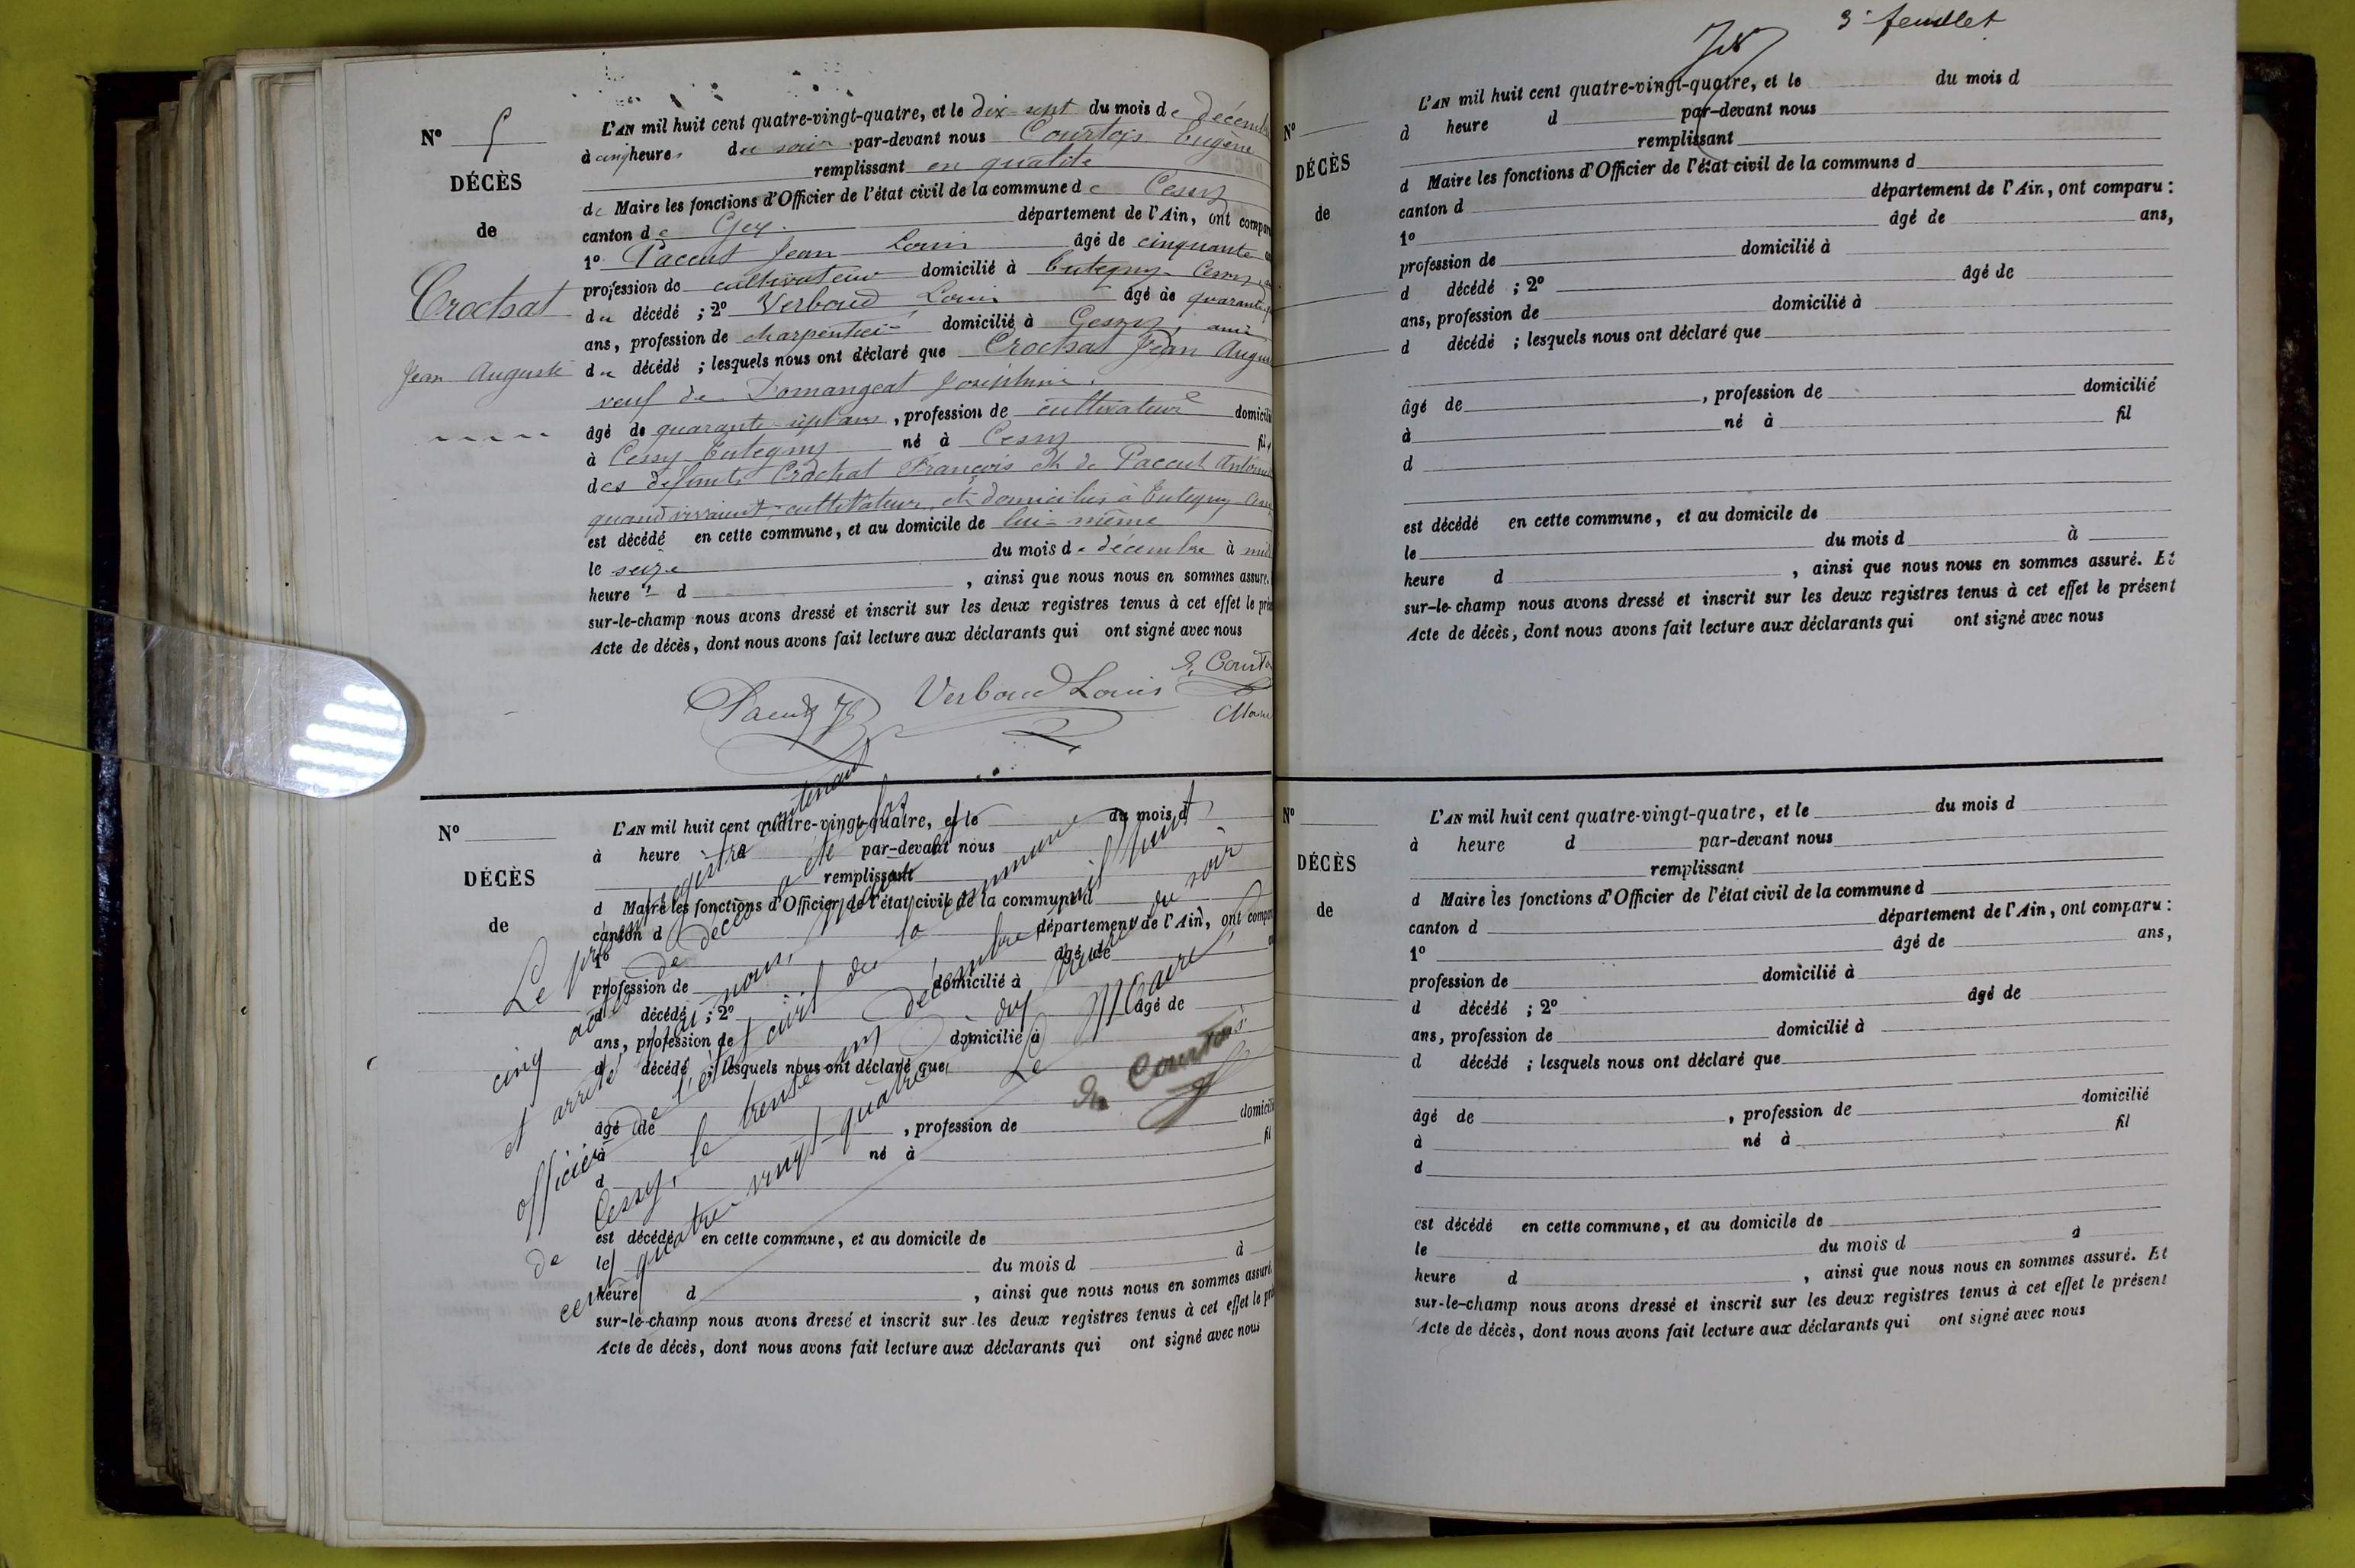 N° 5
DÉCÈS
de
Crochat
Jean Auguste
L'AN mil huit cent quatre-vingt-quatre, et le dix sept du mois de décembre
à cinq heures du soir par-devant nous Courtois Eugène
remplissant en qualité
de Maire les fonctions d'Officier de l'état civil de la commune de Cessy
canton de Gex département de l'Ain, ont compar
1° Paccut Jean Louis âgé de cinquante
profession de cultivateur domicilié à Cutegny Cessy
du décédé ; 2° Verboud Louis âgé de quarante
ans, profession de charpentier domicilié à Cessy, ami
du décédé ; lesquels nous ont déclaré que Crochat Jean Augus
veuf de Domangeat Joséphine,
âgé de quarante-sept ans, profession de cultivateur domicili
à Cessy Cutegny né à Cessy fils
des défunts Crochat François et de Paccut Antoine
quand vivaient cultivateurs et domiciliés à Cutegny Cess
est décédé en cette commune, et au domicile de lui-même
le seize du mois de décembre à midi
heure d , ainsi que nous nous en sommes assuré.
sur-le-champ nous avons dressé et inscrit sur les deux registres tenus à cet effet le prés
Acte de décès, dont nous avons fait lecture aux déclarants qui ont signé avec nous
Paccut Verboud Louis E. Courto
Maire
N°
DÉCÈS
de
L'AN mil huit cent quatre-vingt-quatre, et le du mois d
à heure d par-devant nous
remplissant
d Maire les fonctions d'Officier de l'état civil de la commune d
canton d département de l'Ain, ont compar
1° âgé de
profession de domicilié à
d décédé ; 2° âgé de
ans, profession de domicilié à
d décédé ; lesquels nous ont déclaré que
âgé de , profession de domicili
à né à fil
d
est décédé en cette commune, et au domicile de
le du mois d à
heure d , ainsi que nous nous en sommes assuré.
sur-le-champ nous avons dressé et inscrit sur les deux registres tenus à cet effet le pré
Acte de décès, dont nous avons fait lecture aux déclarants qui ont signé avec nous
Le présent registre contenant
cinq actes de décès a été clos
et arrêté par nous, Maire
officier de l'état civil de la commune
de Cessy, le trente un décembre mil huit
cent quatre-vingt quatre, dix heures du soir
Le Maire,
Courtois
3e feuillet
N°
DÉCÈS
de
L'AN mil huit cent quatre-vingt-quatre, et le du mois d
à heure d par-devant nous
remplissant
d Maire les fonctions d'Officier de l'état civil de la commune d
canton d département de l'Ain, ont comparu :
1° âgé de ans,
profession de domicilié à
d décédé ; 2° âgé de
ans, profession de domicilié à
d décédé ; lesquels nous ont déclaré que
âgé de , profession de domicilié
à né à fil
d
est décédé en cette commune, et au domicile de
le du mois d à
heure d , ainsi que nous nous en sommes assuré. Et
sur-le-champ nous avons dressé et inscrit sur les deux registres tenus à cet effet le présent
Acte de décès, dont nous avons fait lecture aux déclarants qui ont signé avec nous
N°
DÉCÈS
de
L'AN mil huit cent quatre-vingt-quatre, et le du mois d
à heure d par-devant nous
remplissant
d Maire les fonctions d'Officier de l'état civil de la commune d
canton d département de l'Ain, ont comparu :
1° âgé de ans,
profession de domicilié à
d décédé ; 2° âgé de
ans, profession de domicilié à
d décédé ; lesquels nous ont déclaré que
âgé de , profession de domicilié
à né à fil
d
est décédé en cette commune, et au domicile de
le du mois d à
heure d , ainsi que nous nous en sommes assuré. Et
sur-le-champ nous avons dressé et inscrit sur les deux registres tenus à cet effet le présent
Acte de décès, dont nous avons fait lecture aux déclarants qui ont signé avec nous